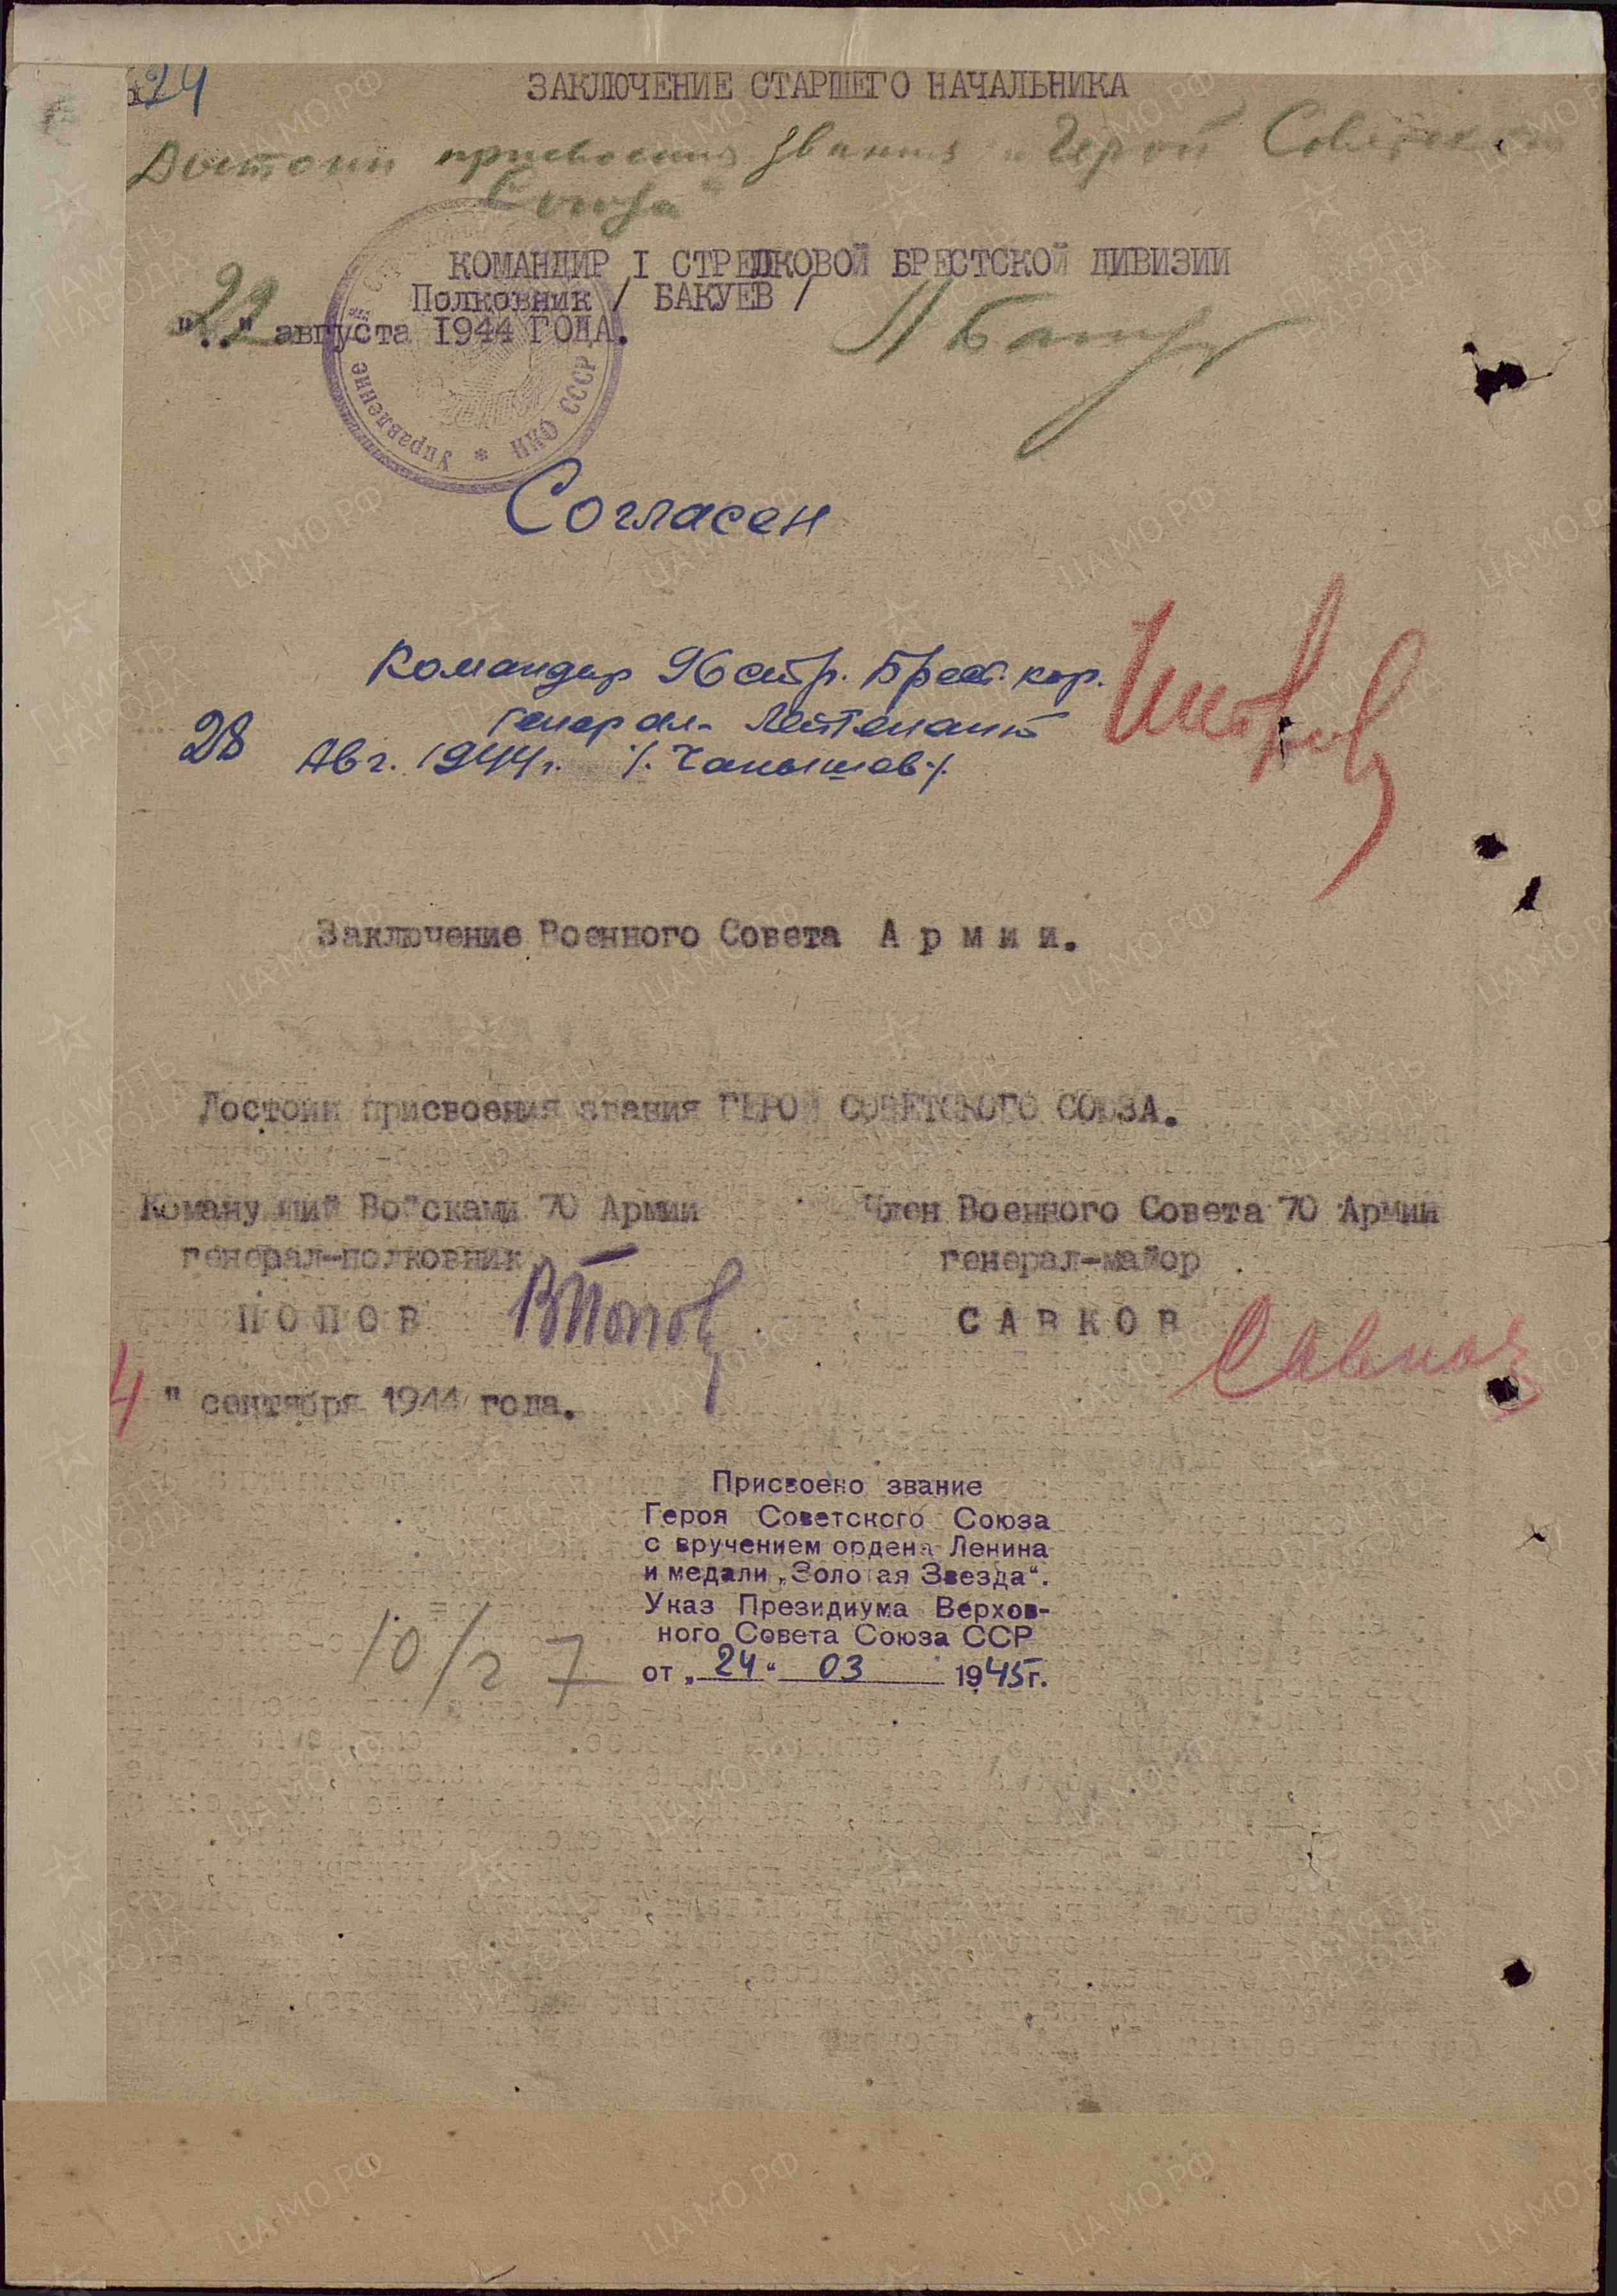 24
ЗАКЛЮЧЕНИЕ СТАРШЕГО НАЧАЛЬНИКА
Достоин присвоения звания "Герой Советского
Союза"
КОМАНДИР I СТРЕЛКОВОЙ БРЕСТСКОЙ ДИВИЗИИ
Полковник / БАКУЕВ /
"22" августа 1944 ГОДА.
Управление * НКО СССР
Согласен
Командир 96 стр. Брест. кор.
генерал-лейтенант
28 Авг. 1944г. /. Чанышев./
Заключение Военного Совета Армии.
Достоин присвоения звания ГЕРОЙ СОВЕТСКОГО СОЮЗА.
Команду щий Войсками 70 Армии Член Военного Совета 70 Армии
генерал-полковник генерал-майор
ПОПОВ ВПопов САВКОВ Савков
4 " сентября 1944 года.
Присвоено звание
Героя Советского Союза
с вручением ордена Ленина
и медали „Золотая Звезда“.
Указ Президиума Верхов-
ного Совета Союза ССР
от „24“ 03 1945г.
ЦАМО.РФ
ПАМЯТЬ НАРОДА